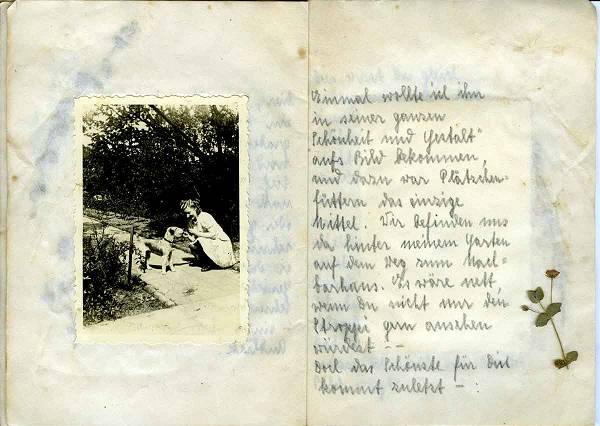 Einmal wollte ich ihn
in seiner ganzen
Schönheit und Gestalt"
aufs Bild bekommen,
und dazu war Plätzchen-
füttern das einzige
Mittel. Wir befinden uns
da hinter meinem Garten
auf dem Weg zum Nach-
barhaus. Es wäre nett,
wenn Du nicht nur den
gern ansehen
würdest --
doch das Schönste für Dich
kommt zuletzt - :